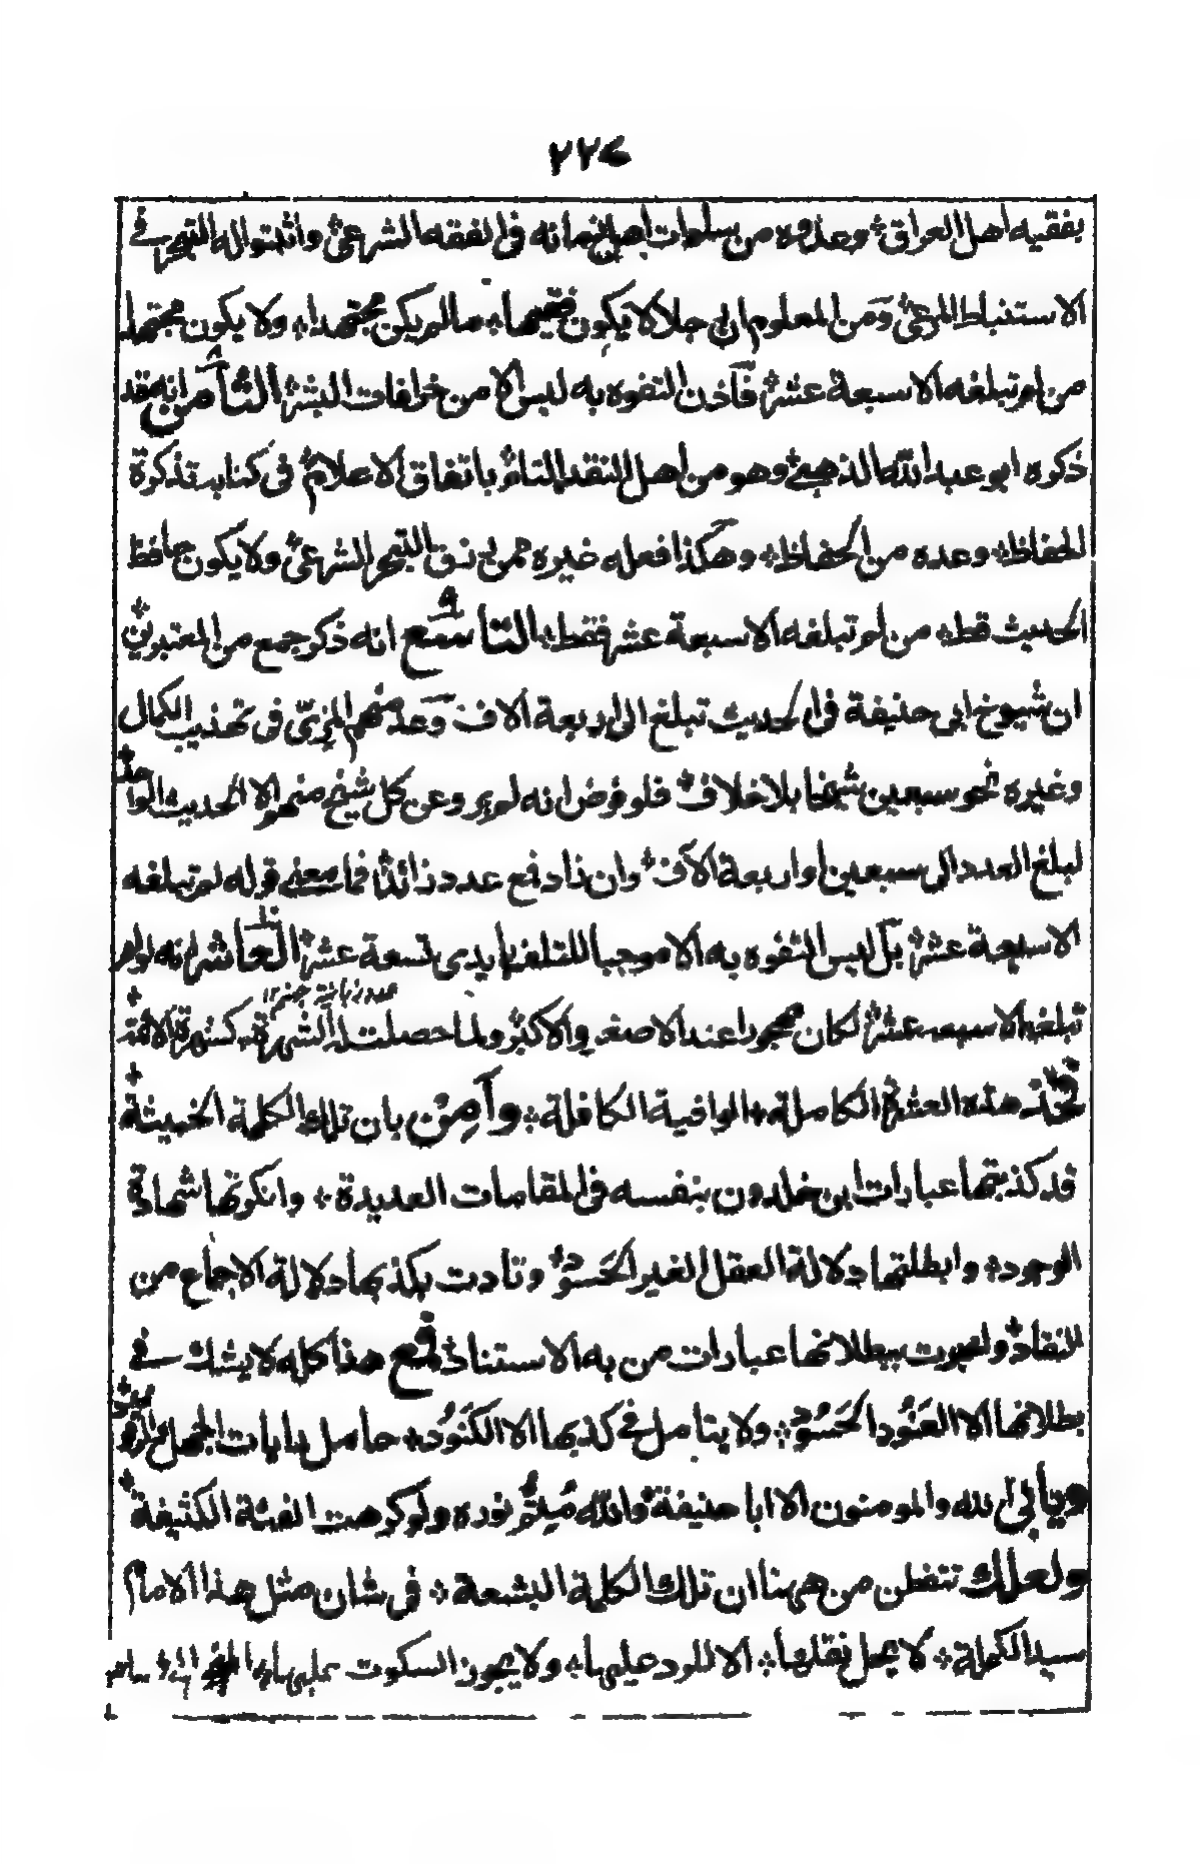 ٢٢٤
بفقيه اهل العراق؞ وعدوه من سادات اهل زمانه في الفقه الشرعي؞ واثبتوا له التبحر في
الاستنباط المرعي؞ ومن المعلوم ان رجلا لا يكون فقيها؞ ما لم يكن مجتهدا؞ ولا يكون مجتهدا
من لم تبلغه الا سبعة عشر؞ فاذن التفوه به ليس الا من خرافات البشر؞ الثامن انه قد
ذكره ابو عبد الله الذهبي؞ وهو من اهل النقد التام؞ باتفاق الاعلام؞ في كتابه تذكرة
الحفاظ؞ وعده من الحفاظ؞ وهكذا فعله غيره ممن رزق التبحر الشرعي؞ ولا يكون حافظ
الحديث قط؞ من لم تبلغه الا سبعة عشر فقط؞ التاسع انه ذكر جمع من المعتبرين؞
ان شيوخ ابي حنيفة في الحديث تبلغ الى اربعة الاف؞ وعد منهم المزي في تهذيب الكمال
وغيره نحو سبعين شيخا بلا خلاف؞ فلو فرض انه لم يرو عن كل شيخ منهم الا الحديث الواحد؞
لبلغ العدد الى سبعين او اربعة الاف؞ وان زاد فمع عدد زائد؞ فما معنى قوله لم تبلغه
الا سبعة عشر؞ بل ليس التفوه به الا موجبا للتلف بايدى تسعة عشر؞ العاشر انه لو لم
عدد زبانية جهنم ١٢
تبلغه الا سبعة عشر؞ لكان مهجورا عند الاصغر والاكبر؞ ولما حصلت له الشهرة؞ كشهرة الائمة؞
فخذ هذه العشرة الكاملة؞ الوافية الكافلة؞ وآمن بان تلك الكلمة الخبيثة؞
قد كذبتها عبارات ابن خلدون بنفسه في المقامات العديدة؞ وانكرتها شهادة
الوجود؞ وابطلتها دلالة العقل الغير الحسود؞ ونادت بكذبها دلالة الاجماع من
النقاد؞ ببطلانها عبارات من به الاستناد؞ فمع هذا كله لا يشك في
بطلانها الا العنود الحسود؞ ولا يتامل في كذبها الا الكنود؞ حامل رايات الجهل
ويأبى الله والمومنون الا ابا حنيفة؞ والله متم نوره ولو كرهت الفئة الكثيفة؞
ولعلك تتفطن من ههنا ان تلك الكلمة البشعة؞ في شان مثل هذا الامام
سيد الكملة؞ لا يحل نقلها؞ الا للرد عليها؞ ولا يجوز السكوت عليها؞